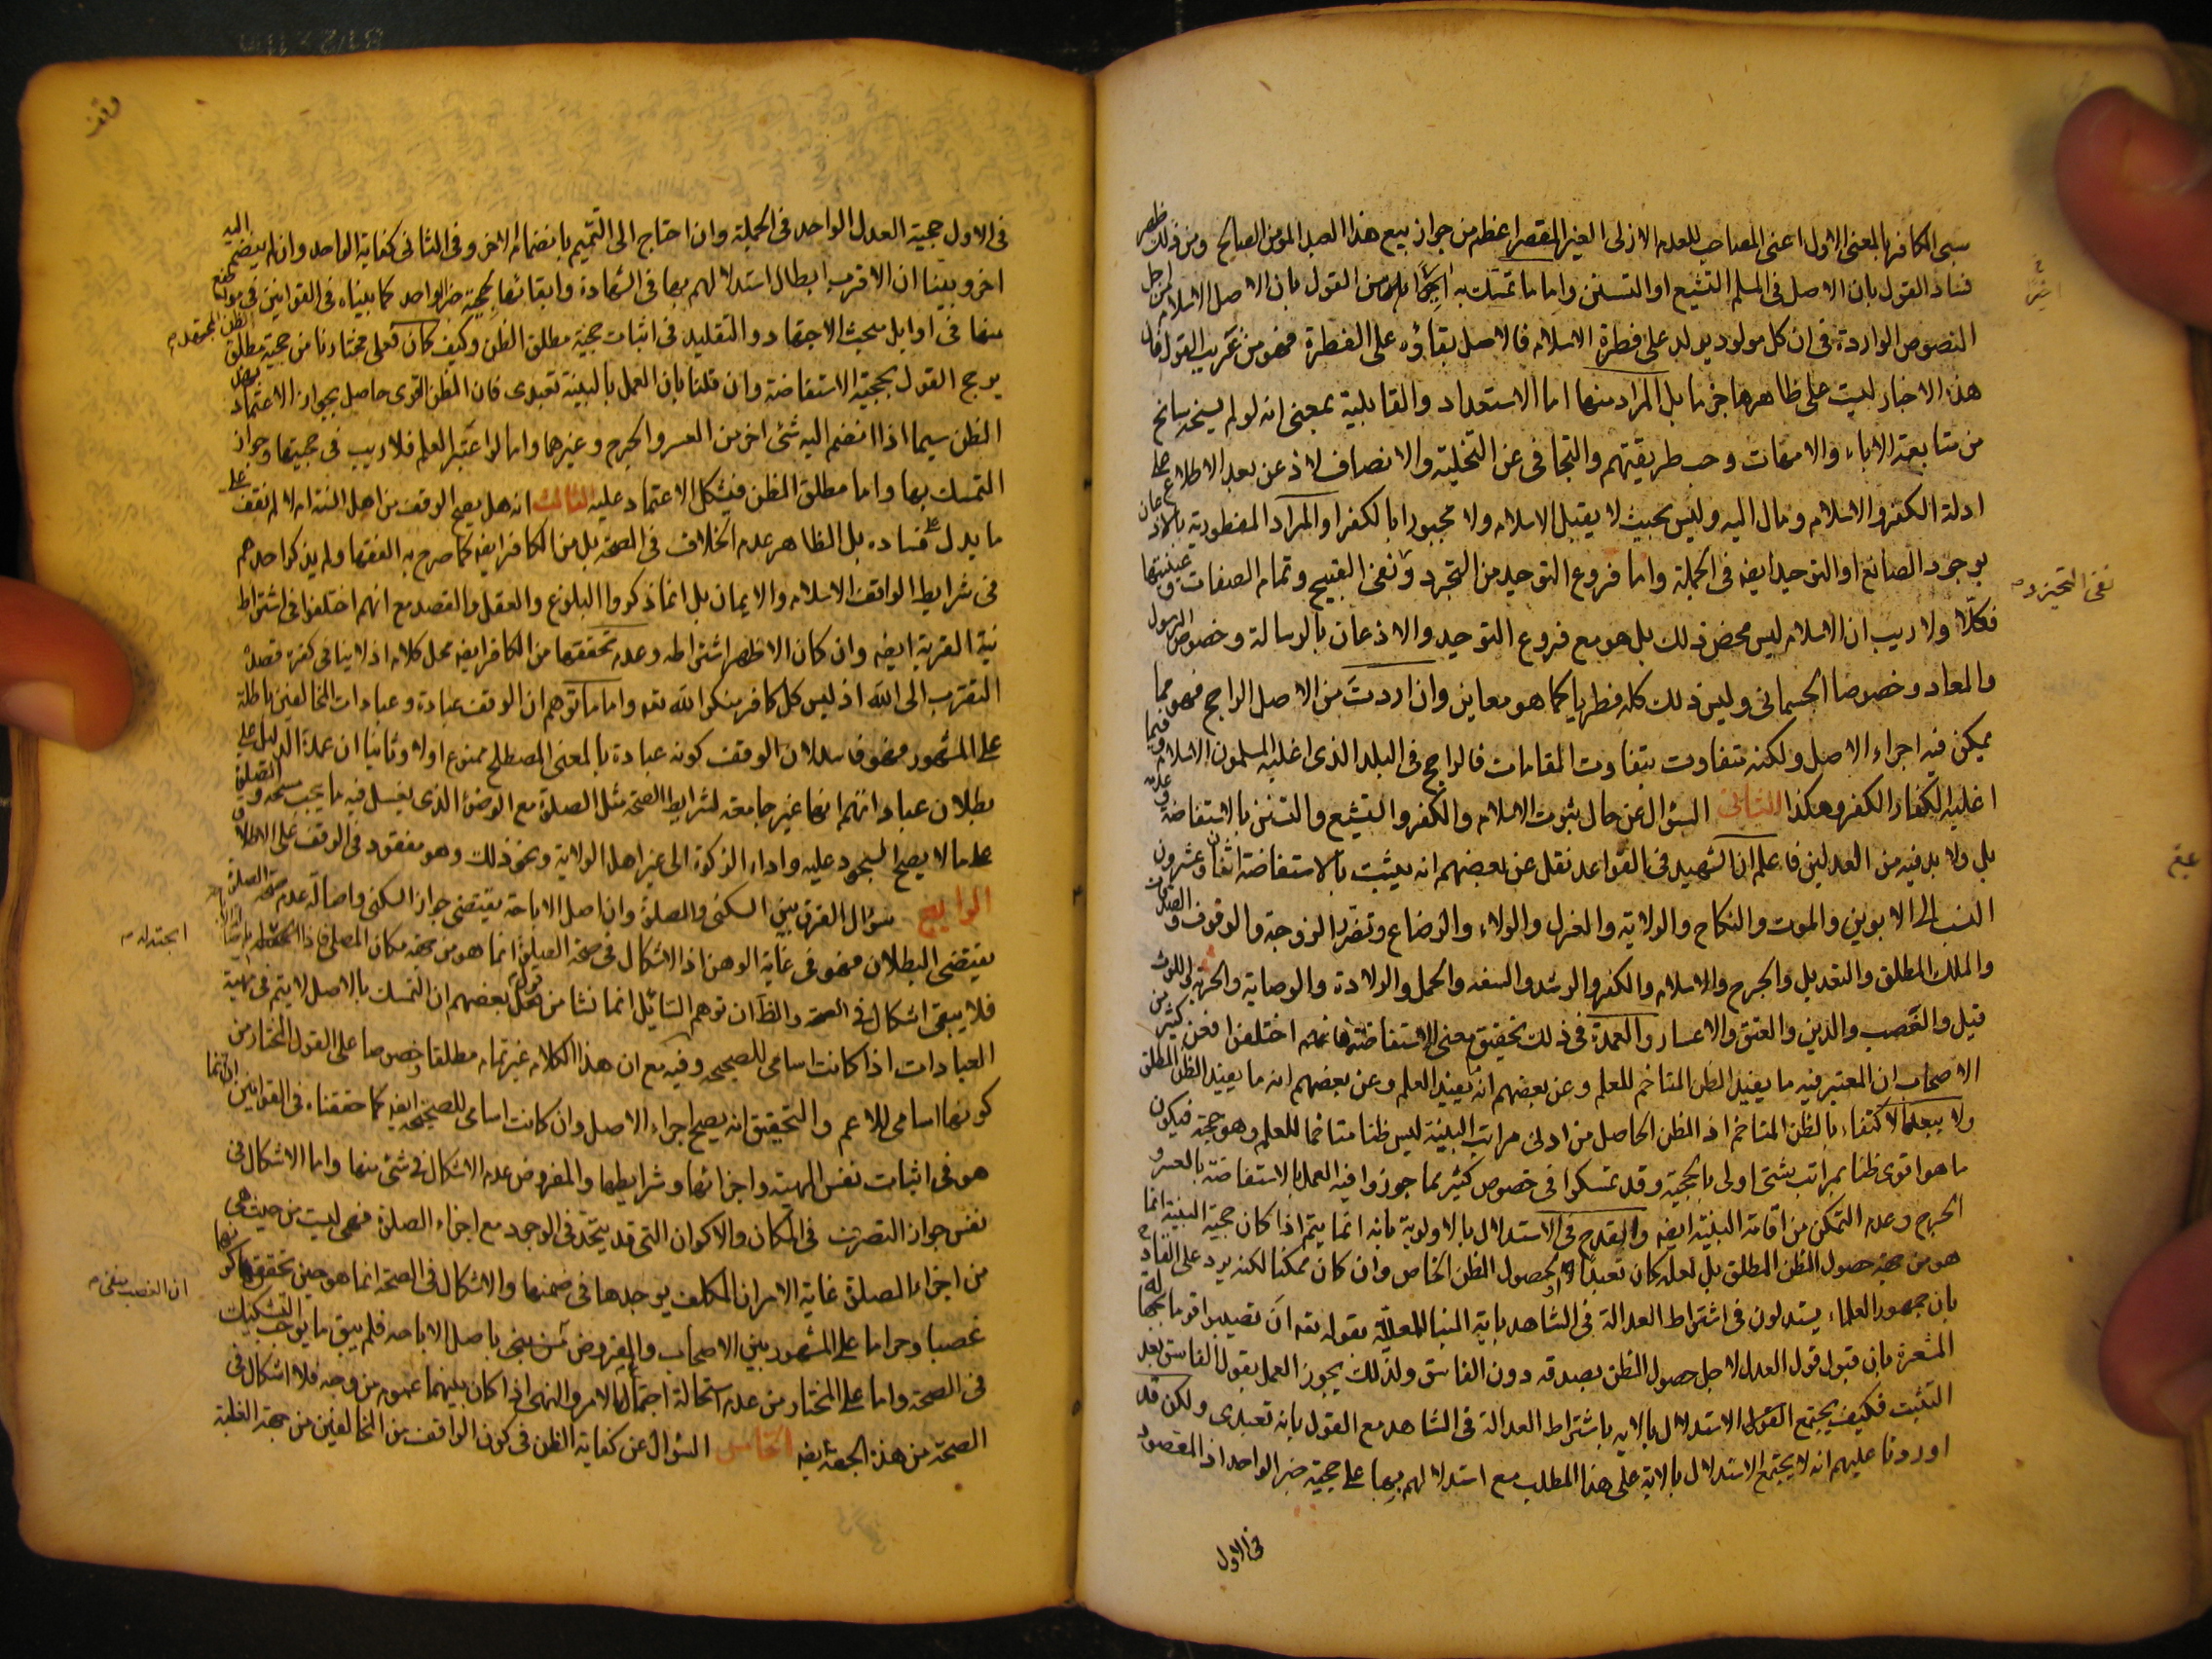 سبى الكافر بالمعنى الاول اعنى المصاحب للعدم الازلى الغير المقصر اعظم من جواز بيع هذا العبد المؤمن الصالح ومن ذلك ظهر
فساد القول بان الاصل فى المسلم التشيع او التسنن واما ما تمسك به من القول بان الاصل الاسلام من اجل
النصوص الواردة فى ان كل مولود يولد على فطرة الاسلام فالاصل بقاؤه على الفطرة فهو من غريب القول فان
هذه الاخبار ليست على ظاهرها جزما بل المراد منها اما الاستعداد والقابلية بمعنى انه لو لم يسنحه سانح
من متابعة الاباء والامهات وحب طريقتهم والتجافى عن التخلية والانصاف لاذعن بعد الاطلاع على
ادلة الكفر والاسلام ومال اليه وليس بحيث لا يقبل الاسلام ولا مجبورا بالكفر او المراد المفطورية بالاذعان
بوجود الصانع او التوحيد ايضه فى الجملة واما فروع التوحيد من التجرد ونفى القبيح وتمام الصفات وعينيتها
فكلا ولا ريب ان الاسلام ليس محض ذلك بل هو مع فروع التوحيد والاذعان بالرسالة وخصوص الرسول
والمعاد وخصوصا الجسمانى وليس ذلك كله فطريا كما هو معاين وان اردت من الاصل الراجح فهو مما
يمكن فيه اجراء الاصل ولكنه متفاوت بتفاوت المقامات فالراجح فى البلد الذى اغلبه المسلمون الاسلام وفيما
اغلبه الكفار الكفر وهكذا الثانى السؤال عن حال ثبوت الاسلام والكفر والتشيع والتسنن بالاستفاضة وعدمه
بل ولا بد فيه من العدلين فاعلم ان الشهيد فى القواعد نقل عن بعضهم انه يثبت بالاستفاضة اثنان وعشرون
النسب الى الابوين والموت والنكاح والولاية والعزل والولاء والرضاع وتضرر الزوجة والوقوف والصدقات
والملك المطلق والتعديل والجرح والاسلام والكفر والرشد والسفه والحمل والولادة والوصاية والحرية واللوث
قيل والغصب والدين والعتق والاعسار والعمدة فى ذلك تحقيق معنى الاستفاضة فانهم اختلفوا فعن كثير من
الاصحاب ان المعتبر فيه ما يفيد الظن المتاخم للعلم وعن بعضهم انه يفيد العلم وعن بعضهم انه ما يفيد الظن المطلق
ولا يبعد الاكتفاء بالظن المتاخم اذ الظن الحاصل من ادنى مراتب البينة ليس ظنا متاخما للعلم وهو حجة فيكون
ما هو اقوى ظنا بمراتب شتى اولى بالحجية وقد تمسكوا فى خصوص كثير مما جوزوا فيه العمل بالاستفاضة بالعسر و
الحرج وعدم التمكن من اقامة البينة ايضه والقدح فى الاستدلال بالاولوية بانه انما يتم اذا كان حجية البينة انما
هو من جهة حصول الظن المطلق بل لعله كان تعبدا او لحصول الظن الخاص وان كان ممكنا لكنه يرد على القادح
بان جمهور العلماء يستدلون فى اشتراط العدالة فى الشاهد باية النبا المعللة بقوله تعه ان تصيبوا قوما بجهالة
المشعرة بان قبول قول العدل لاجل حصول الظن بصدقه دون الفاسق ولذلك يجوز العمل بقول الفاسق بعد
التثبت فكيف يجتمع القول الاستدلال بالاية باشتراط العدالة فى الشاهد مع القول بانه تعبدى ولكن قد
اوردنا عليهم انه لا يجتمع الاستدلال بالاية على هذا المطلب مع استدلالهم بها على حجية خبر الواحد اذ المقصود
فى الاول
نفى التحيز و
وقف
فى الاول حجية العدل الواحد فى الجملة وان احتاج الى التتميم بانضمام الاخر وفى الثانى كفاية الواحد وان لم ينضم اليه
اخر وبينا ان الاقرب ابطال استدلالهم بها فى الشهادة وابقائها لحجية خبر الواحد كما بيناه فى القوانين فى مواضع
منها فى اوايل مبحث الاجتهاد والتقليد فى اثبات حجية مطلق الظن وكيف كان فعلى مختارنا من حجية مطلق الظن للمجتهد
يرجح القول بحجية الاستفاضة وان قلنا بان العمل بالبينة تعبدى فان الظن القوى حاصل بجواز الاعتماد
الظن سيما اذا انضم اليه شئ اخر من العسر والحرج وغيرها واما لو اعتبر العلم فلا ريب فى حجيتها وجواز
التمسك بها واما مطلق الظن فيشكل الاعتماد عليه الثالث انه هل يصح الوقف من اهل السنة ام لا لم نقف على
ما يدل على فساده بل الظاهر عدم الخلاف فى الصحة بل من الكافر ايضه كما صرح به الفقها ولم يذكر احدهم
فى شرايط الواقف الاسلام والايمان بل انما ذكروا البلوغ والعقل والقصد مع انهم اختلفوا فى اشتراط
نية القربة ايضه وان كان الاظهر اشتراطه وعدم تحققها من الكافر ايضه محل كلام اذ لا ينافى كفره قصد
التقرب الى الله اذ ليس كل كافر منكر الله تعه واما ما توهم ان الوقف عبادة وعبادات المخالفين باطلة
على المشهور فهو فاسد لان الوقف كونه عبادة بالمعنى المصطلح ممنوع اولا وثانيا ان عمدة الدليل على
بطلان عباداتهم انها غير جامعة لشرايط الصحة مثل الصلوة مع الوضوء الذى يغسل فيه ما يجب مسحه والصلوة
على ما لا يصح السجود عليه واداء الزكوة الى غير اهل الولاية ونحو ذلك وهو مفقود فى الوقف على الاطلاق
الرابع سؤال الفرق بين السكنى والصلوة وان اصل الاباحة يقتضى جواز السكنى واصالة عدم صحة الصلوة
يقتضى البطلان فهو فى غاية الوهن اذ الاشكال فى صحة الصلوة انما هو من جهة مكان المصلى
فلا يبقى اشكال فى الصحة والظ ان توهم السائل انما نشا من قول بعضهم ان التمسك بالاصل لا يتم فى مهية
العبادات اذا كانت اسامى للصحيحه وفيه مع ان هذا الكلام غير تمام مطلقا وخصوصا على القول المختار من
كونها اسامى للاعم والتحقيق انه يصح اجراء الاصل وان كانت اسامى للصحيحة ايضه كما حققناه فى القوانين انما
هو فى اثبات نفس المهية واجزائها وشرايطها والمفروض عدم الاشكال فى شئ منها واما الاشكال فى
نفس جواز التصرف فى المكان والاكوان التى قد يتحد فى الوجود مع اجزاء الصلوة فهى ليست من حيث هى
من اجزاء الصلوة غاية الامر ان المكلف يوجدها فى ضمنها والاشكال فى الصحة انما هو حين تحقق كونها
غصبا وحراما على المشهور بين الاصحاب والمفروض باصل الاباحه فلم يبق ما يوجب التشكيك
فى الصحة واما على المختار من عدم استحالة اجتماع الامر والنهى اذا كان بينهما عموم من وجه فلا اشكال فى
الصحة من هذه الجهة ايضه الخامس السؤال عن كفاية الظن فى كون الواقف من المخالفين من جهة الغلبة
ان الغصب منفى